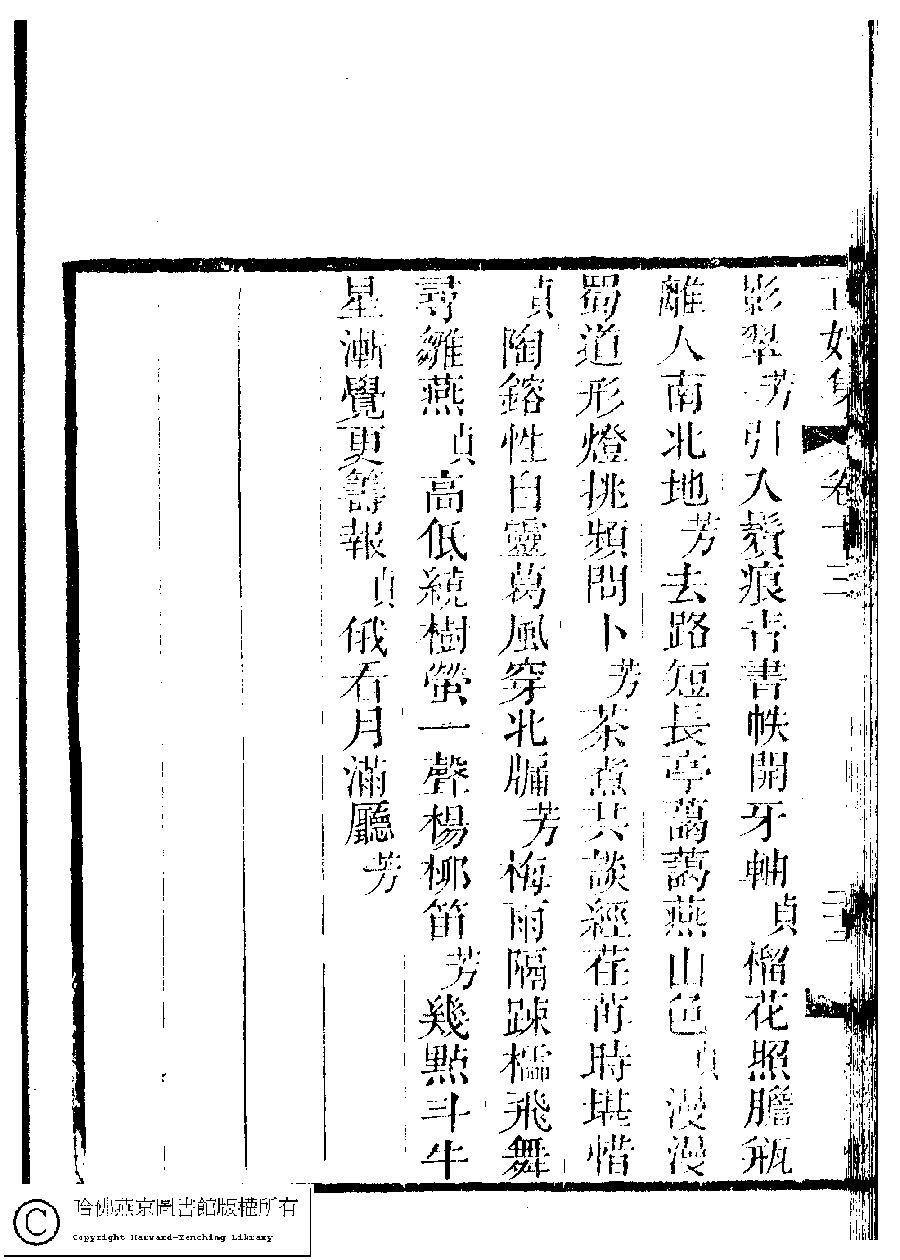 正始集 卷十三
影翠芳引入鬢痕青書帙開牙軸貞榴花照膽瓶
離人南北地芳去路短長亭藹藹燕山色貞漫漫
蜀道形燈挑頻問卜芳茶煮共談經荏苒時堪惜
貞陶鎔性自靈葛風穿北牖芳梅雨隔疎櫺飛舞
尋雛燕貞高低繞樹螢一聲楊柳笛芳幾點斗牛
星漸覺更籌報貞俄看月滿廳芳
哈佛燕京圖書館版權所有
Copyright Harvard-Yenching Library